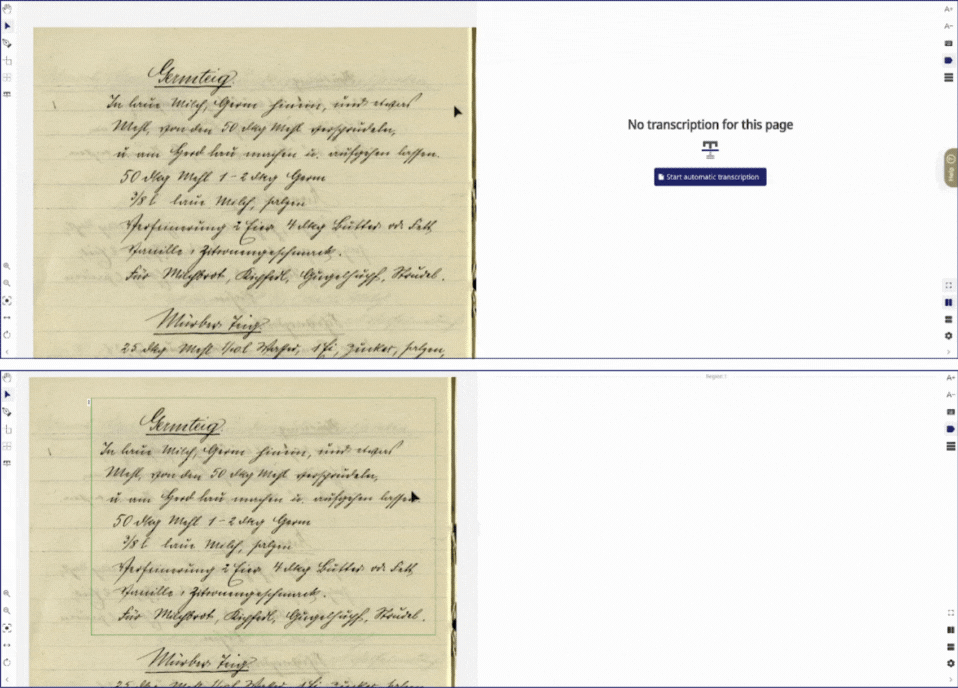 Germteig.
In laue Milch, Germ hinein, und etwas
Mehl, von den 50 dkg Mehl versprudeln,
u am Herd lau machen u. aufgehen lassen.
50 dkg Mehl 1-2 dkg Germ
3/8 l laue Milch, salzen
Verfeinerung 2 Eier, 4 dkg Butter od. Fett,
Vanille, Zitronengeschmack.
Für Milchbrot, Kipferl, Gugelhupf, Strudel.
Mürber Teig.
25 dkg Mehl 1/10 l Wasser, 1 Ei, Zucker, salzen,
No transcription for this page
Start automatic transcription
A+
A-
Help
Region 1
A+
A-
1
Germteig.
In laue Milch, Germ hinein, und etwas
Mehl, von den 50 dkg Mehl versprudeln,
u am Herd lau machen u. aufgehen lassen
50 dkg Mehl 1-2 dkg Germ
3/8 l laue Milch, salzen
Verfeinerung 2 Eier, 4 dkg Butter od. Fett,
Vanille, Zitronengeschmack.
Für Milchbrot, Kipferl, Gugelhupf, Strudel.
Mürber Teig.